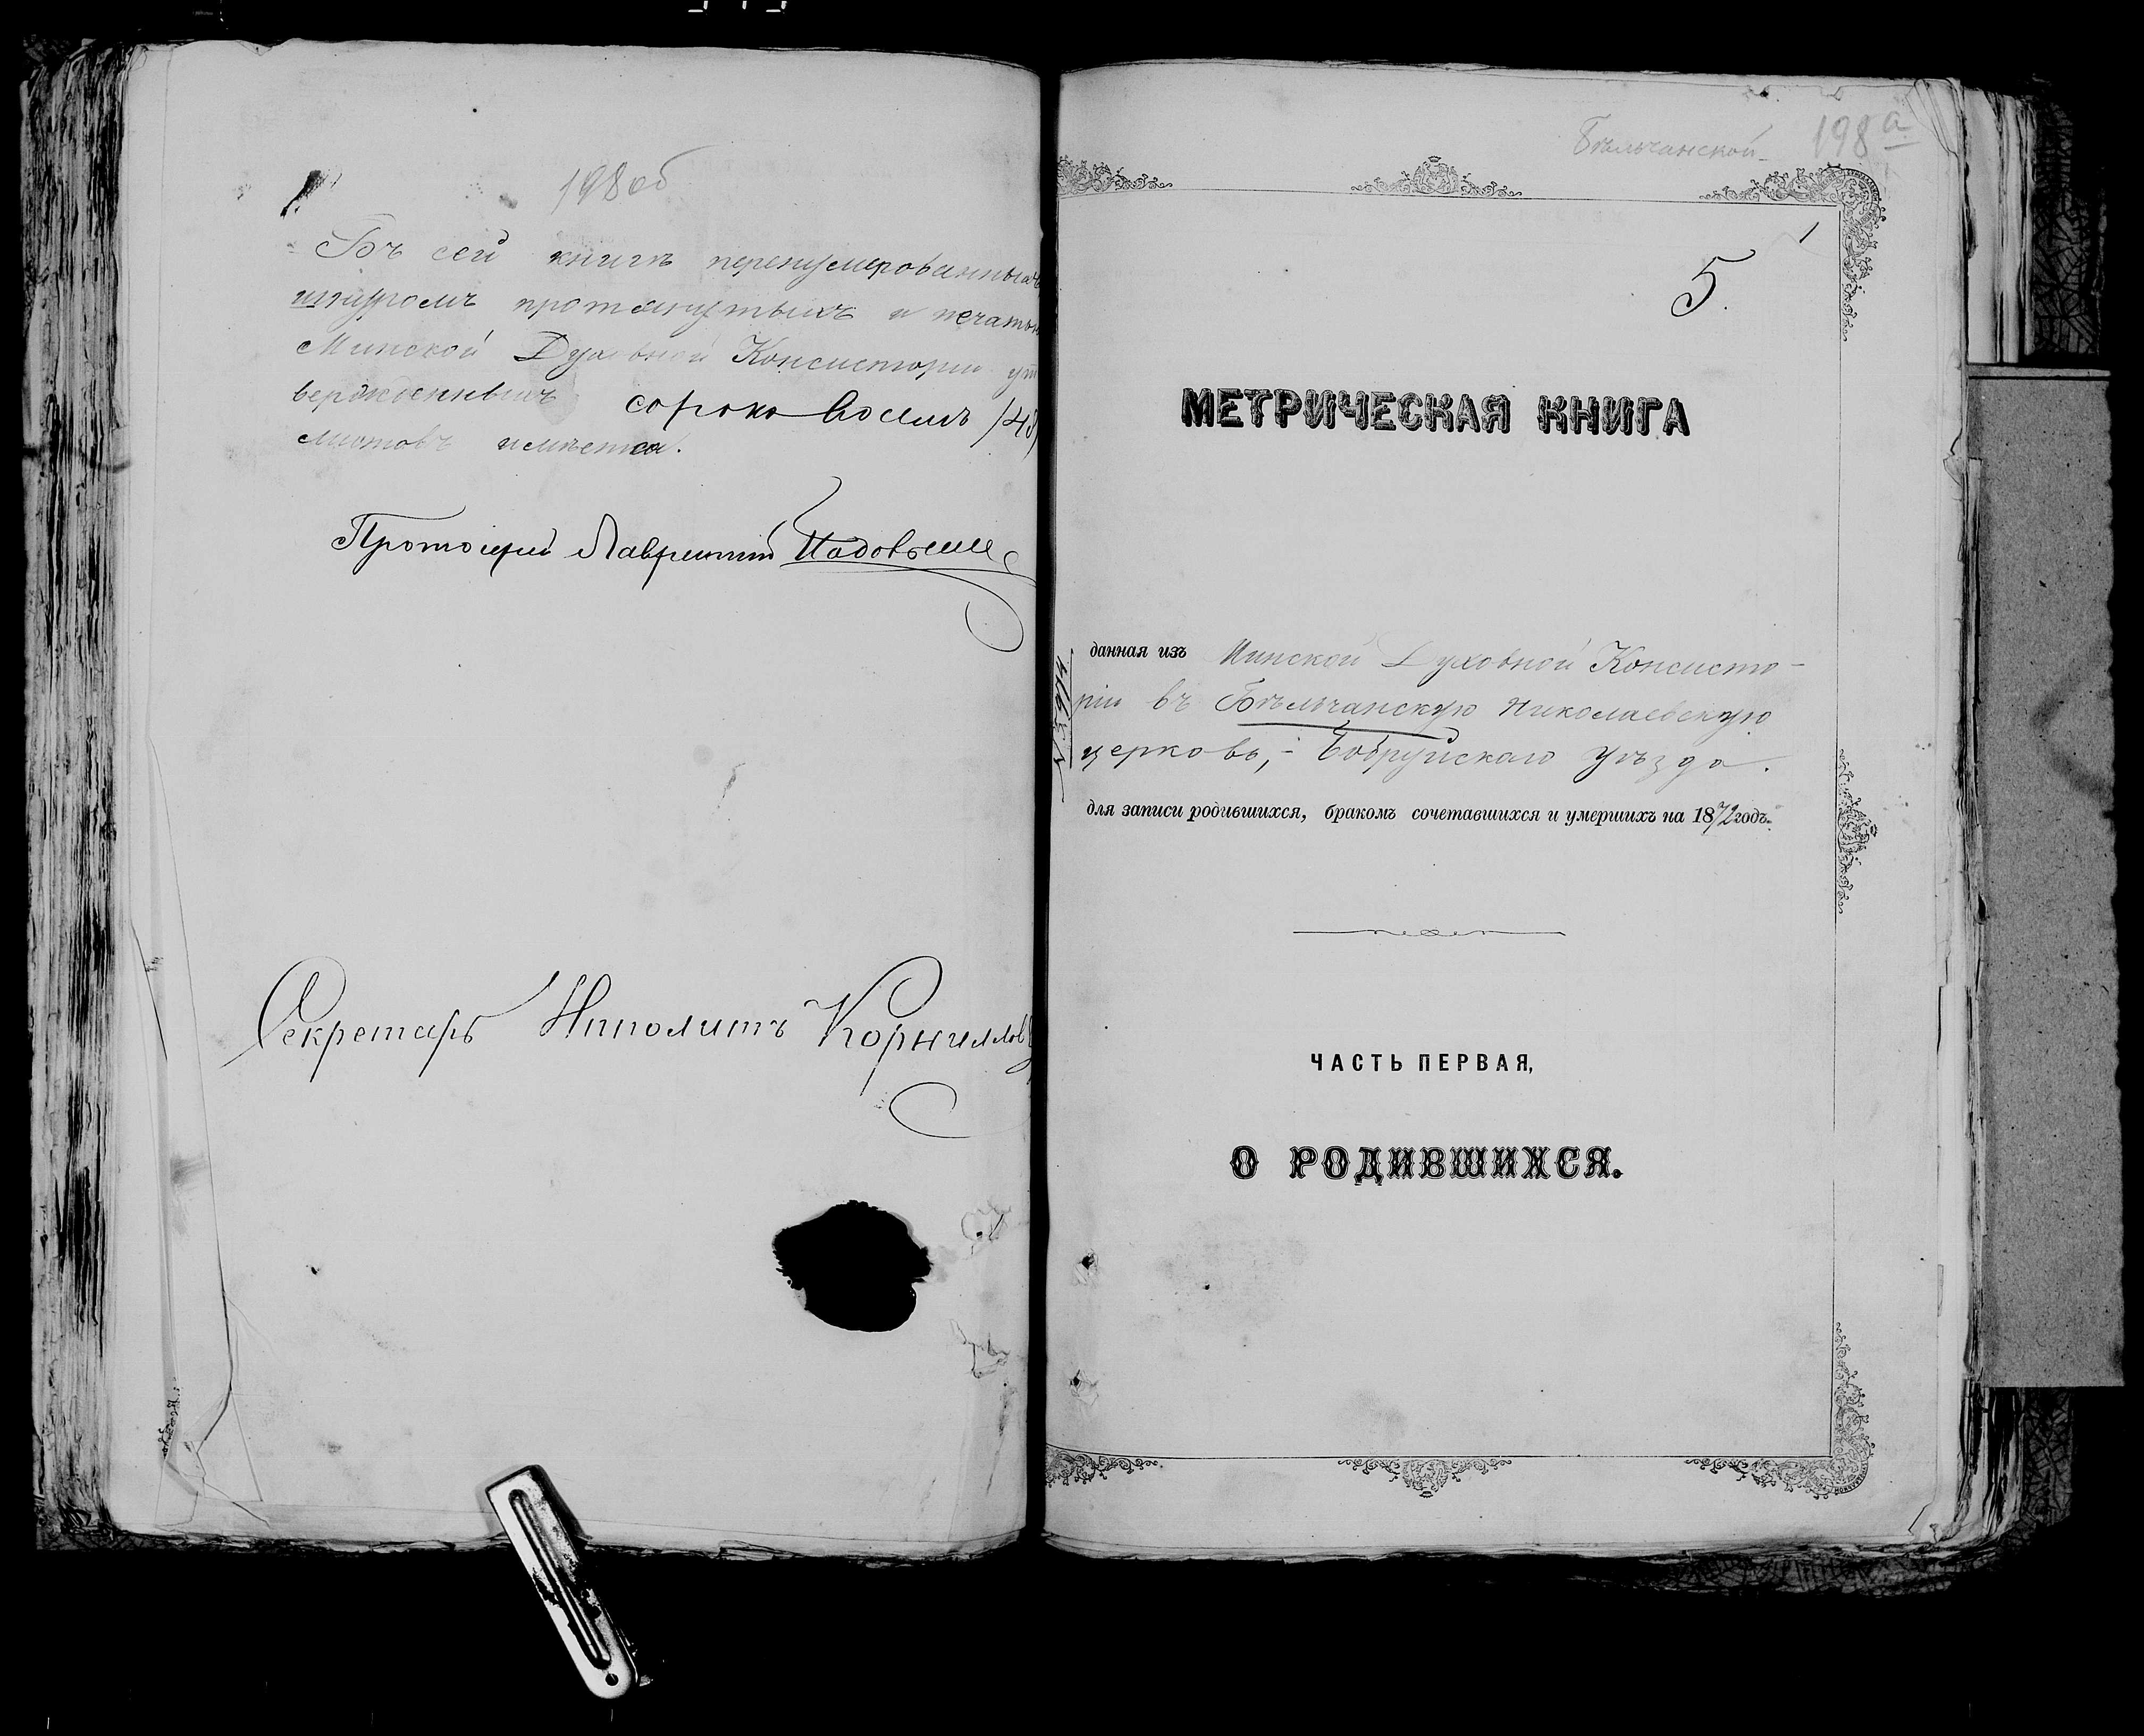 198 об
Въ сей книгѣ перенумерованныхъ
шнуромъ протянутыхъ и печатью
Минской Духовной Консисторіи ут
вержденныхъ сорокъ восемь /48/
листовъ имѣется.
Протоіерей Лаврентій
Секретарь Ипполитъ Корниллов
Бѣльчанской
198а
1
5.
МЕТРИЧЕСКАЯ КНИГА
данная изъ Минской Духовной Консисто-
ріи въ Бѣльчанскую Николаевскую
церковь,- Бобруйскаго уѣзда.
для записи родившихся, бракомъ сочетавшихся и умершихъ на 1872 годъ.
ЧАСТЬ ПЕРВАЯ,
О РОДИВШИХСЯ.